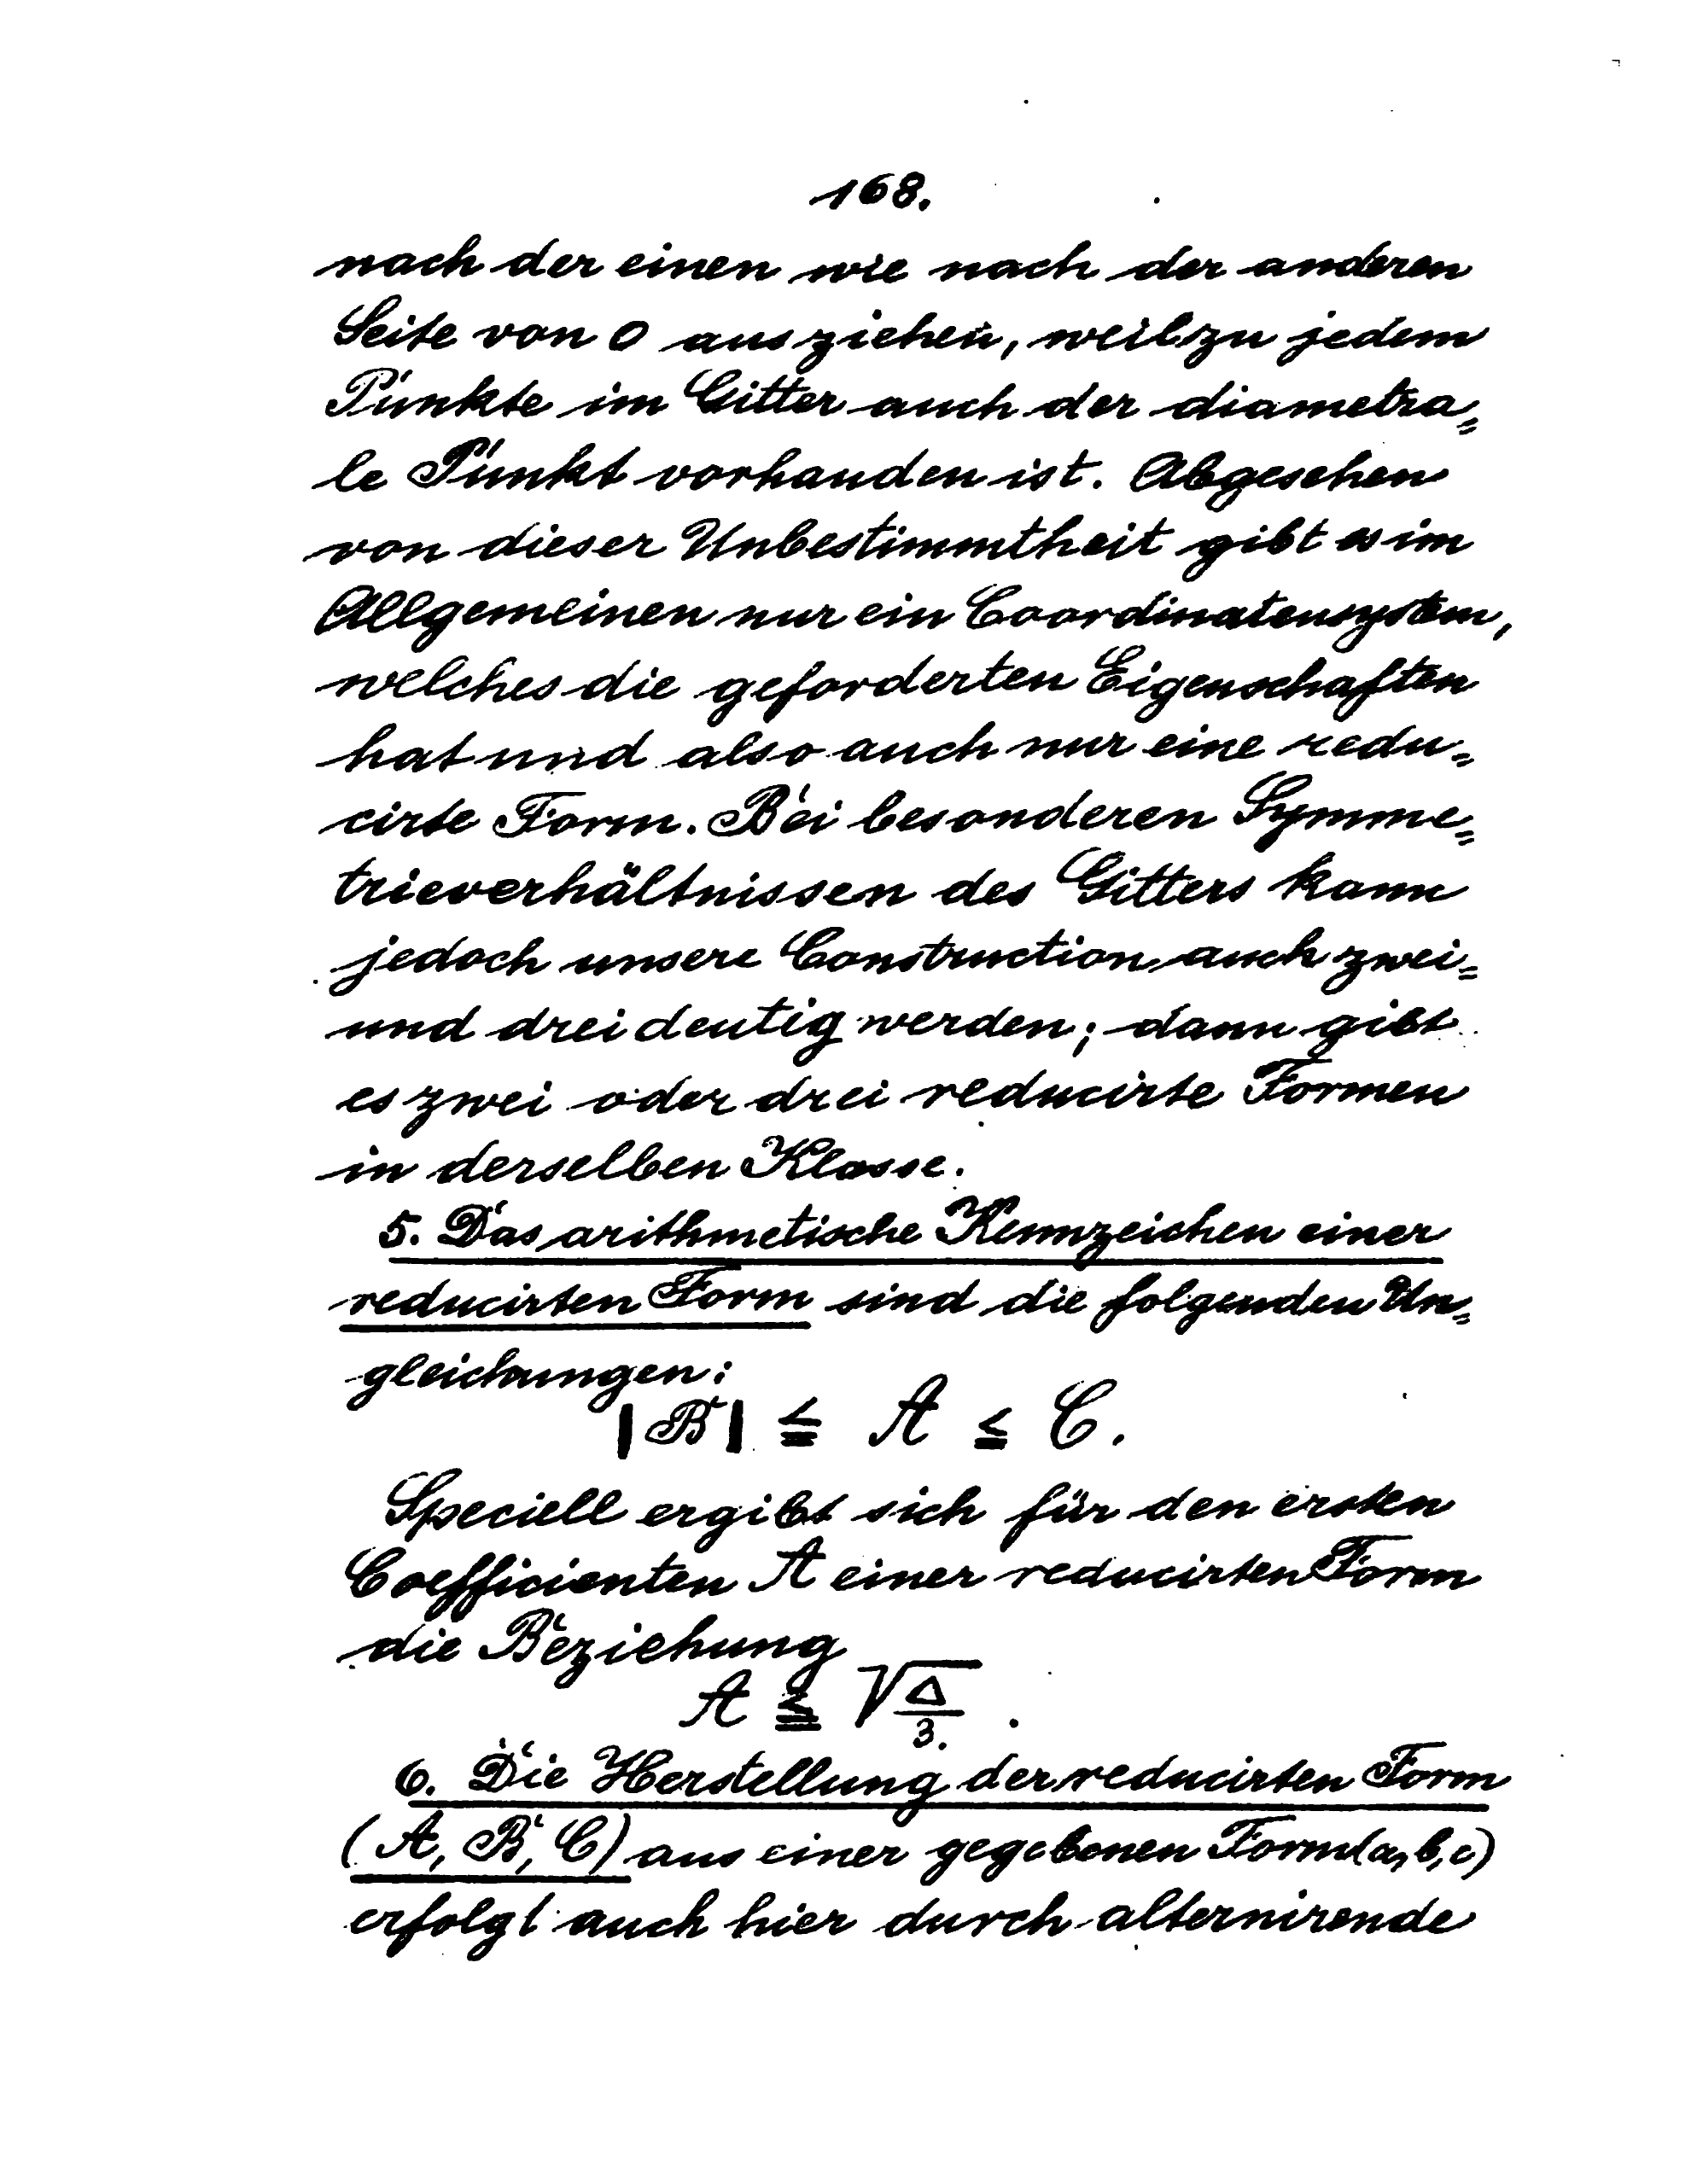 168.
nach der einen wie nach der anderen
Seite von O ausziehen, weil zu jedem
Punkte im Gitter auch der diametra=
le Punkt vorhanden ist. Abgesehen
von dieser Unbestimmtheit gibt es im
Allgemeinen nur ein Coordinatensystem,
welches die geforderten Eigenschaften
hat und also auch nur eine redu=
cirte Form. Bei besonderen Symme=
trieverhältnissen des Gitters kann
jedoch unsere Construction auch zwei=
und dreideutig werden; dann gibt
es zwei oder drei reducirte Formen
in derselben Klasse.
5. Das arithmetische Kennzeichen einer
reducirten Form sind die folgenden Un=
gleichungen:
|B| ≦ A ≦ C.
Speciell ergibt sich für den ersten
Coefficienten A einer reducirten Form
die Beziehung
A ≦ √(Δ/3).
6. Die Herstellung der reducirten Form
(A, B, C) aus einer gegebenen Form (a, b, c)
erfolgt auch hier durch alternirende